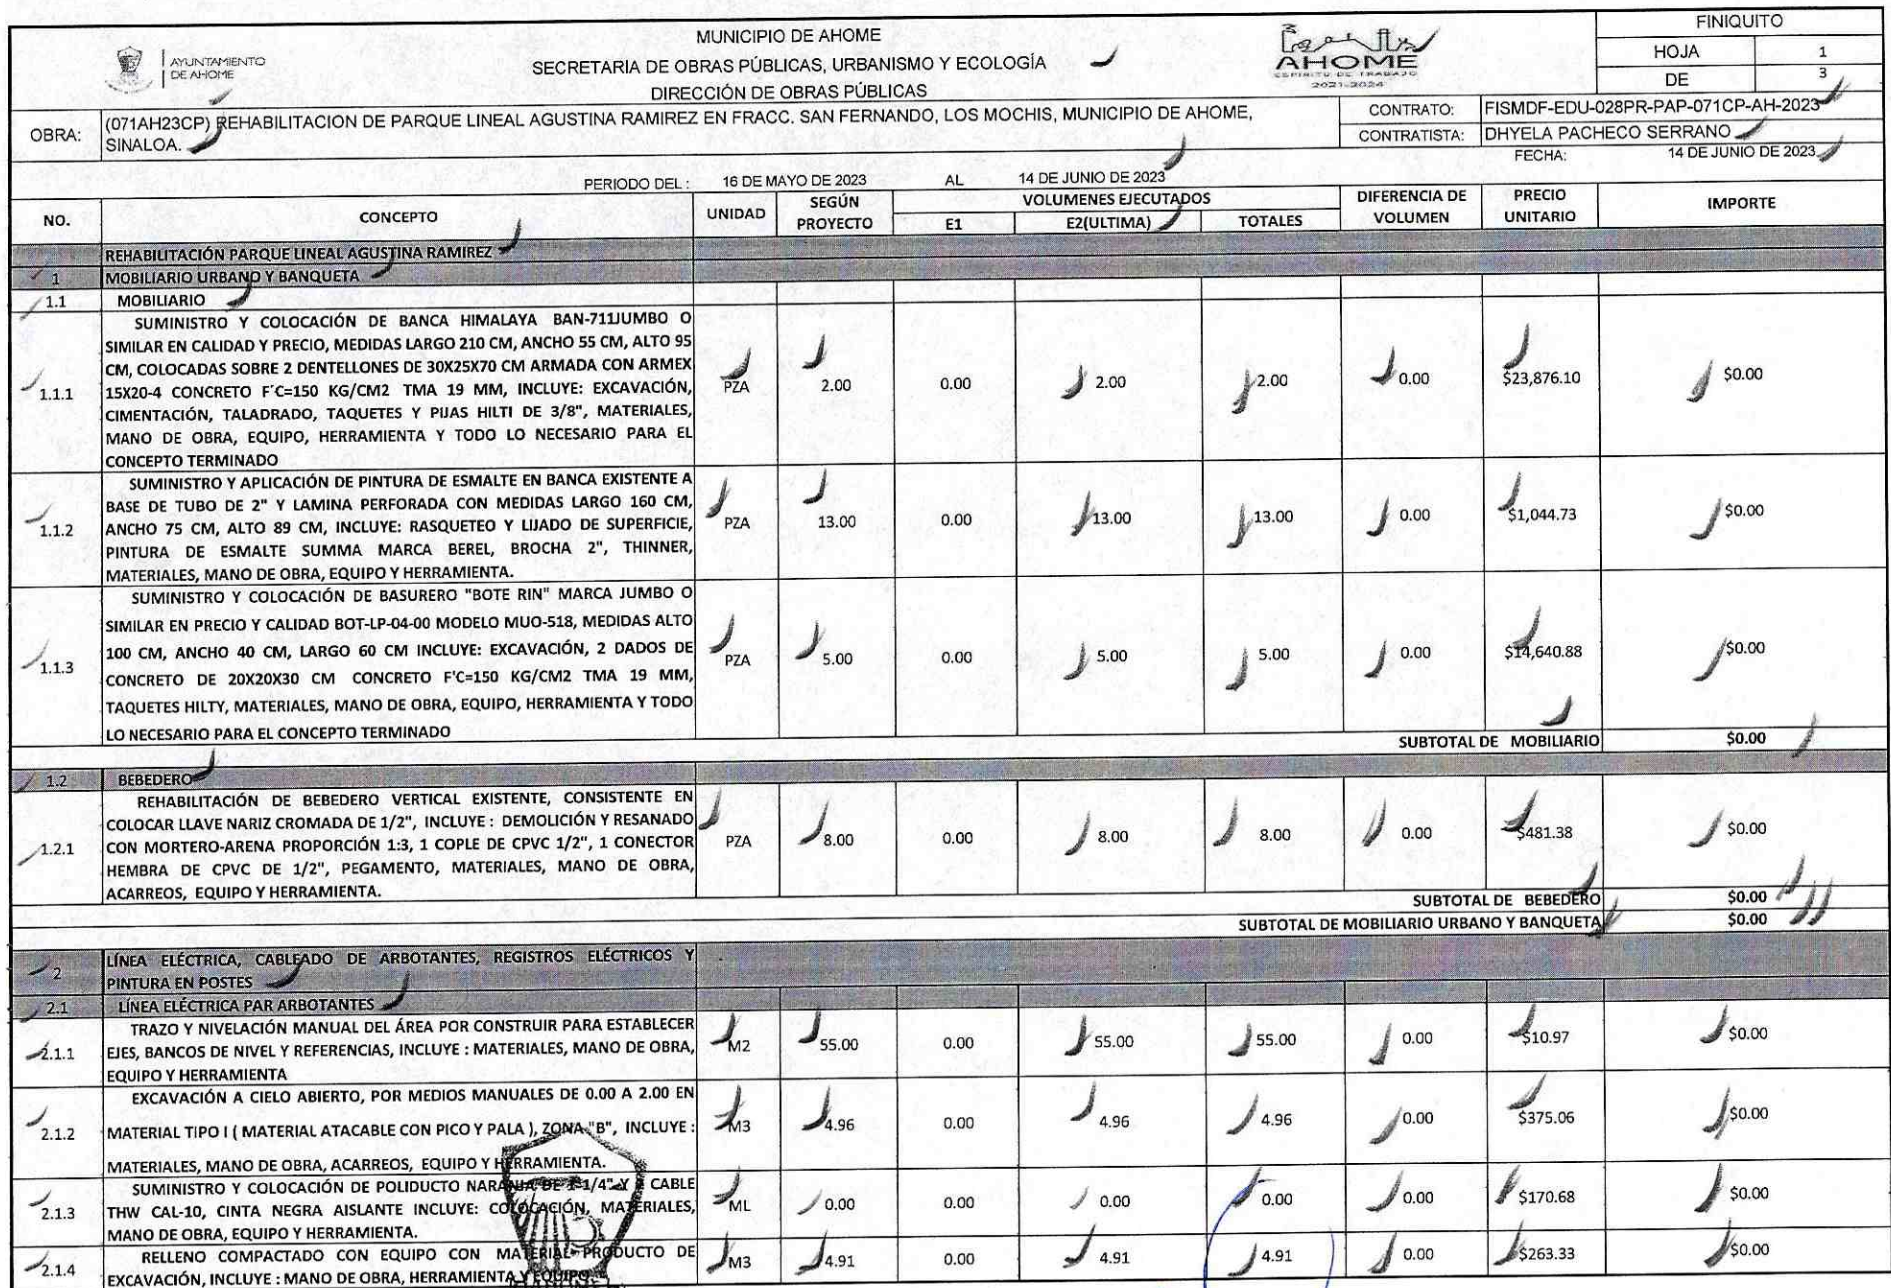 AYUNTAMIENTO
DE AHOME
MUNICIPIO DE AHOME
SECRETARIA DE OBRAS PÚBLICAS, URBANISMO Y ECOLOGÍA
DIRECCIÓN DE OBRAS PÚBLICAS
AHOME
ESPIRITU DE TRABAJO
2021-2024
FINIQUITO
HOJA 1
DE 3
OBRA: (071AH23CP) REHABILITACION DE PARQUE LINEAL AGUSTINA RAMIREZ EN FRACC. SAN FERNANDO, LOS MOCHIS, MUNICIPIO DE AHOME,
SINALOA.
CONTRATO: FISMDF-EDU-028PR-PAP-071CP-AH-2023
CONTRATISTA: DHYELA PACHECO SERRANO
FECHA: 14 DE JUNIO DE 2023
PERIODO DEL : 16 DE MAYO DE 2023 AL 14 DE JUNIO DE 2023
NO. CONCEPTO UNIDAD SEGÚN PROYECTO VOLUMENES EJECUTADOS DIFERENCIA DE VOLUMEN PRECIO UNITARIO IMPORTE
E1 E2(ULTIMA) TOTALES
REHABILITACIÓN PARQUE LINEAL AGUSTINA RAMIREZ
1 MOBILIARIO URBANO Y BANQUETA
1.1 MOBILIARIO
SUMINISTRO Y COLOCACIÓN DE BANCA HIMALAYA BAN-711JUMBO O
SIMILAR EN CALIDAD Y PRECIO, MEDIDAS LARGO 210 CM, ANCHO 55 CM, ALTO 95
CM, COLOCADAS SOBRE 2 DENTELLONES DE 30X25X70 CM ARMADA CON ARMEX
1.1.1 15X20-4 CONCRETO F´C=150 KG/CM2 TMA 19 MM, INCLUYE: EXCAVACIÓN, PZA 2.00 0.00 2.00 2.00 0.00 $23,876.10 $0.00
CIMENTACIÓN, TALADRADO, TAQUETES Y PIJAS HILTI DE 3/8", MATERIALES,
MANO DE OBRA, EQUIPO, HERRAMIENTA Y TODO LO NECESARIO PARA EL
CONCEPTO TERMINADO
SUMINISTRO Y APLICACIÓN DE PINTURA DE ESMALTE EN BANCA EXISTENTE A
BASE DE TUBO DE 2" Y LAMINA PERFORADA CON MEDIDAS LARGO 160 CM,
1.1.2 ANCHO 75 CM, ALTO 89 CM, INCLUYE: RASQUETEO Y LIJADO DE SUPERFICIE, PZA 13.00 0.00 13.00 13.00 0.00 $1,044.73 $0.00
PINTURA DE ESMALTE SUMMA MARCA BEREL, BROCHA 2", THINNER,
MATERIALES, MANO DE OBRA, EQUIPO Y HERRAMIENTA.
SUMINISTRO Y COLOCACIÓN DE BASURERO "BOTE RIN" MARCA JUMBO O
SIMILAR EN PRECIO Y CALIDAD BOT-LP-04-00 MODELO MUO-518, MEDIDAS ALTO
1.1.3 100 CM, ANCHO 40 CM, LARGO 60 CM INCLUYE: EXCAVACIÓN, 2 DADOS DE PZA 5.00 0.00 5.00 5.00 0.00 $14,640.88 $0.00
CONCRETO DE 20X20X30 CM CONCRETO F'C=150 KG/CM2 TMA 19 MM,
TAQUETES HILTY, MATERIALES, MANO DE OBRA, EQUIPO, HERRAMIENTA Y TODO
LO NECESARIO PARA EL CONCEPTO TERMINADO
SUBTOTAL DE MOBILIARIO $0.00
1.2 BEBEDERO
REHABILITACIÓN DE BEBEDERO VERTICAL EXISTENTE, CONSISTENTE EN
COLOCAR LLAVE NARIZ CROMADA DE 1/2", INCLUYE : DEMOLICIÓN Y RESANADO
1.2.1 CON MORTERO-ARENA PROPORCIÓN 1:3, 1 COPLE DE CPVC 1/2", 1 CONECTOR PZA 8.00 0.00 8.00 8.00 0.00 $481.38 $0.00
HEMBRA DE CPVC DE 1/2", PEGAMENTO, MATERIALES, MANO DE OBRA,
ACARREOS, EQUIPO Y HERRAMIENTA.
SUBTOTAL DE BEBEDERO $0.00
SUBTOTAL DE MOBILIARIO URBANO Y BANQUETA $0.00
2 LÍNEA ELÉCTRICA, CABLEADO DE ARBOTANTES, REGISTROS ELÉCTRICOS Y
PINTURA EN POSTES
2.1 LÍNEA ELÉCTRICA PAR ARBOTANTES
TRAZO Y NIVELACIÓN MANUAL DEL ÁREA POR CONSTRUIR PARA ESTABLECER
2.1.1 EJES, BANCOS DE NIVEL Y REFERENCIAS, INCLUYE : MATERIALES, MANO DE OBRA, M2 55.00 0.00 55.00 55.00 0.00 $10.97 $0.00
EQUIPO Y HERRAMIENTA
EXCAVACIÓN A CIELO ABIERTO, POR MEDIOS MANUALES DE 0.00 A 2.00 EN
2.1.2 MATERIAL TIPO I ( MATERIAL ATACABLE CON PICO Y PALA ), ZONA "B", INCLUYE : M3 4.96 0.00 4.96 4.96 0.00 $375.06 $0.00
MATERIALES, MANO DE OBRA, ACARREOS, EQUIPO Y HERRAMIENTA.
SUMINISTRO Y COLOCACIÓN DE POLIDUCTO NARANJA DE 1-1/4" Y CABLE
2.1.3 THW CAL-10, CINTA NEGRA AISLANTE INCLUYE: COLOCACIÓN, MATERIALES, ML 0.00 0.00 0.00 0.00 0.00 $170.68 $0.00
MANO DE OBRA, EQUIPO Y HERRAMIENTA.
RELLENO COMPACTADO CON EQUIPO CON MATERIAL PRODUCTO DE
2.1.4 EXCAVACIÓN, INCLUYE : MANO DE OBRA, HERRAMIENTA Y EQUIPO M3 4.91 0.00 4.91 4.91 0.00 $263.33 $0.00